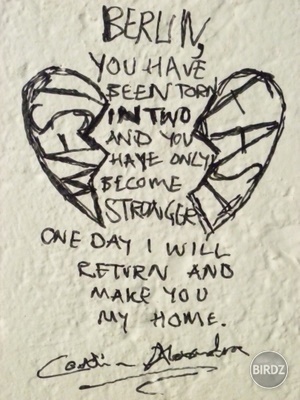 BERLIN,
YOU HAVE
BEEN TORN
IN TWO
AND YOU
HAVE ONLY
BECOME
STRONGER
WEST
EAST
ONE DAY I WILL
RETURN AND
MAKE YOU
MY HOME.
BIRDZ